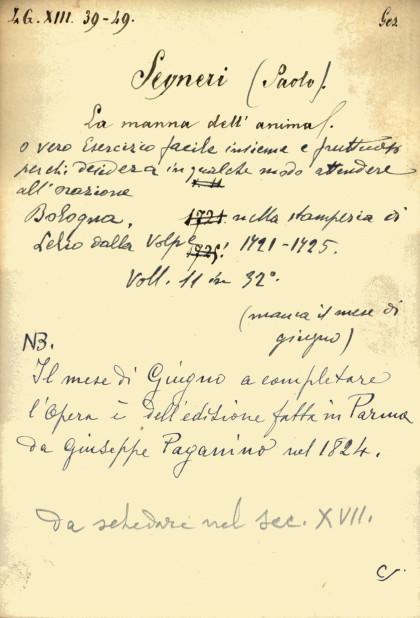 LG. XIII. 39-49. Ges
Segneri (Paolo).
La manna dell'anima.
o vero Esercizio facile insieme e fruttuoso
per chi desidera in qualche modo attendere
all'orazione
Bologna, 1721. nella stamperia di
Lelio dalla Volpe 1725. 1721-1725.
Voll. 11 in 32°.
(manca il mese di
giugno)
NB.
Il mese di Giugno a completare
l'Opera è dell'edizione fatta in Parma
da Giuseppe Paganino nel 1824.
Da schedare nel sec. XVII.